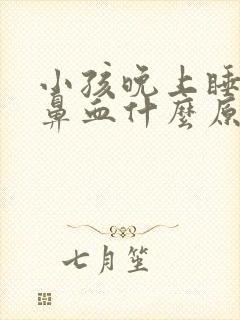 小孩晚上睡
鼻血什麼原
七月笙